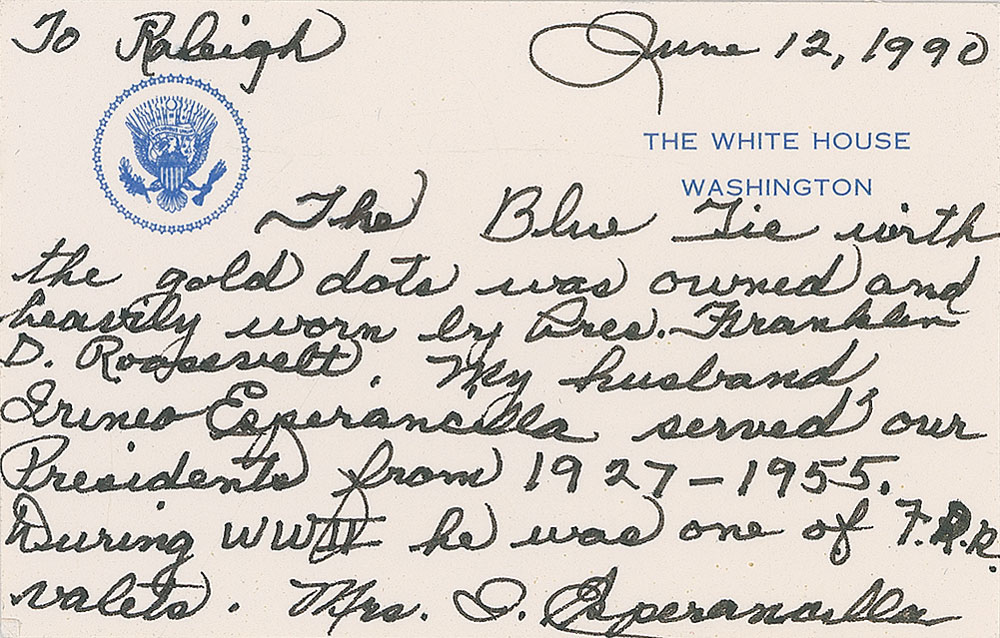 To Raleigh June 12, 1990
THE WHITE HOUSE
WASHINGTON
The Blue Tie with
the gold dots was owned and
heavily worn by Pres. Franklin
D. Roosevelt. My husband,
Irineo Esperancilla served our
Presidents from 1927-1955.
During WWII he was one of F.D.R.
valets. Mrs. I. Esperancilla